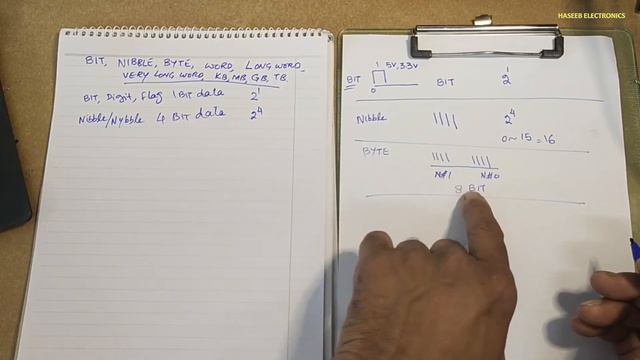 HASEEB ELECTRONICS
BIT, NIBBLE, BYTE, WORD, LONG WORD,
VERY LONG WORD, KB, MB, GB, TB.
BIT, Digit, Flag 1 BIT data 2^1
Nibble/Nybble 4 BIT data 2^4
BIT 1 5V,3.3V BIT 2^1
0
Nibble |||| 2^4
0~15=16
BYTE |||| ||||
N#1 N#0
8 BIT